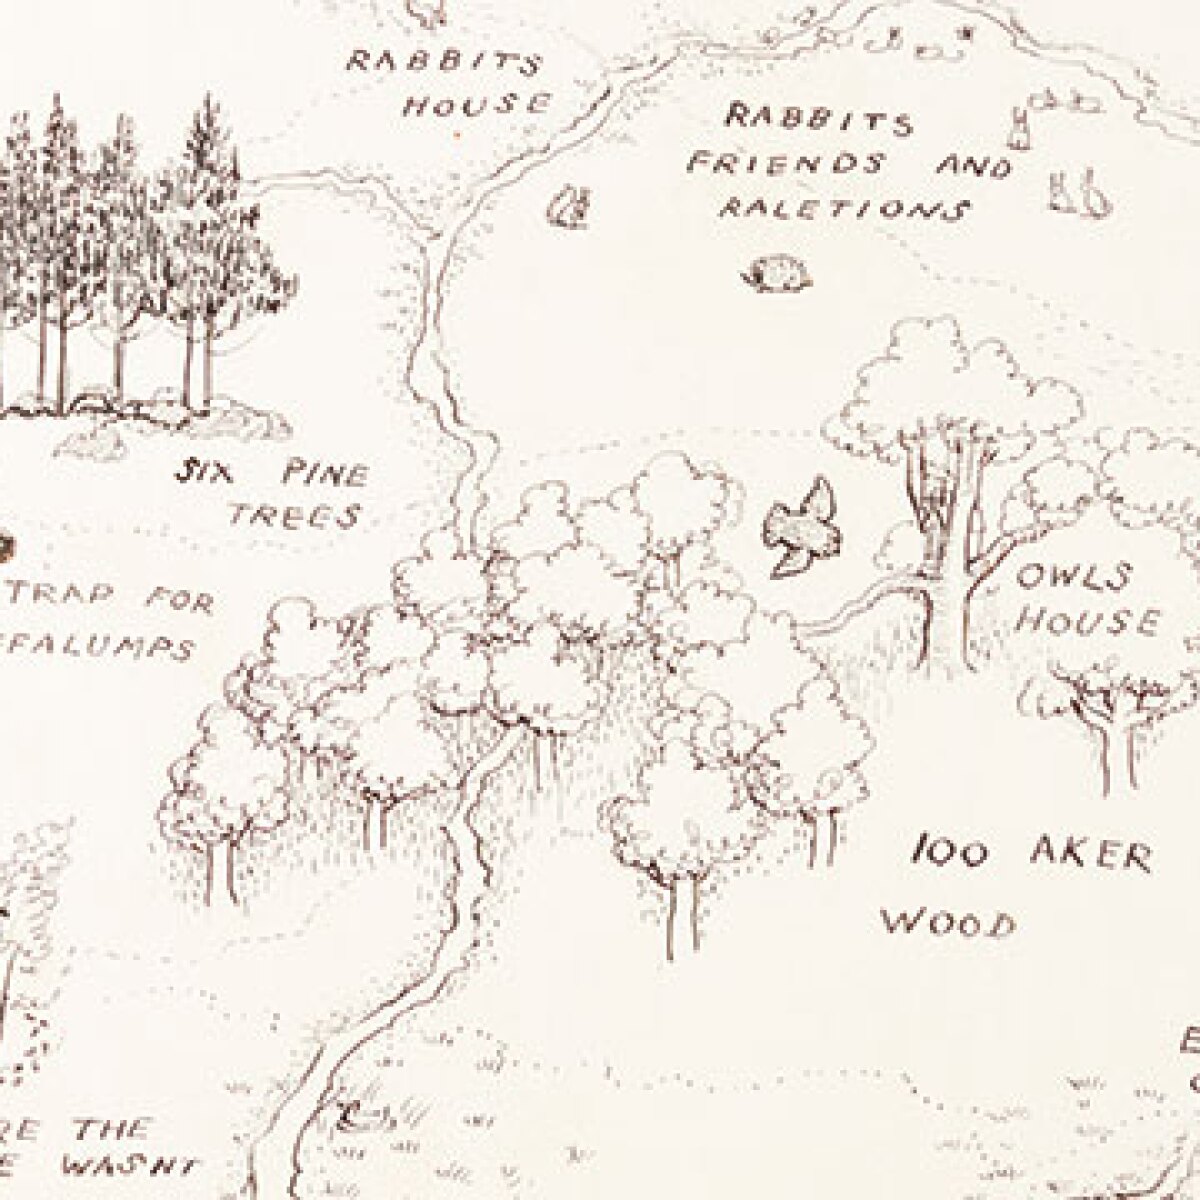 RABBITS
HOUSE
RABBITS
FRIENDS AND
RALETIONS
SIX PINE
TREES
TRAP FOR
FFALUMPS
OWLS
HOUSE
100 AKER
WOOD
RE THE
E WASNT